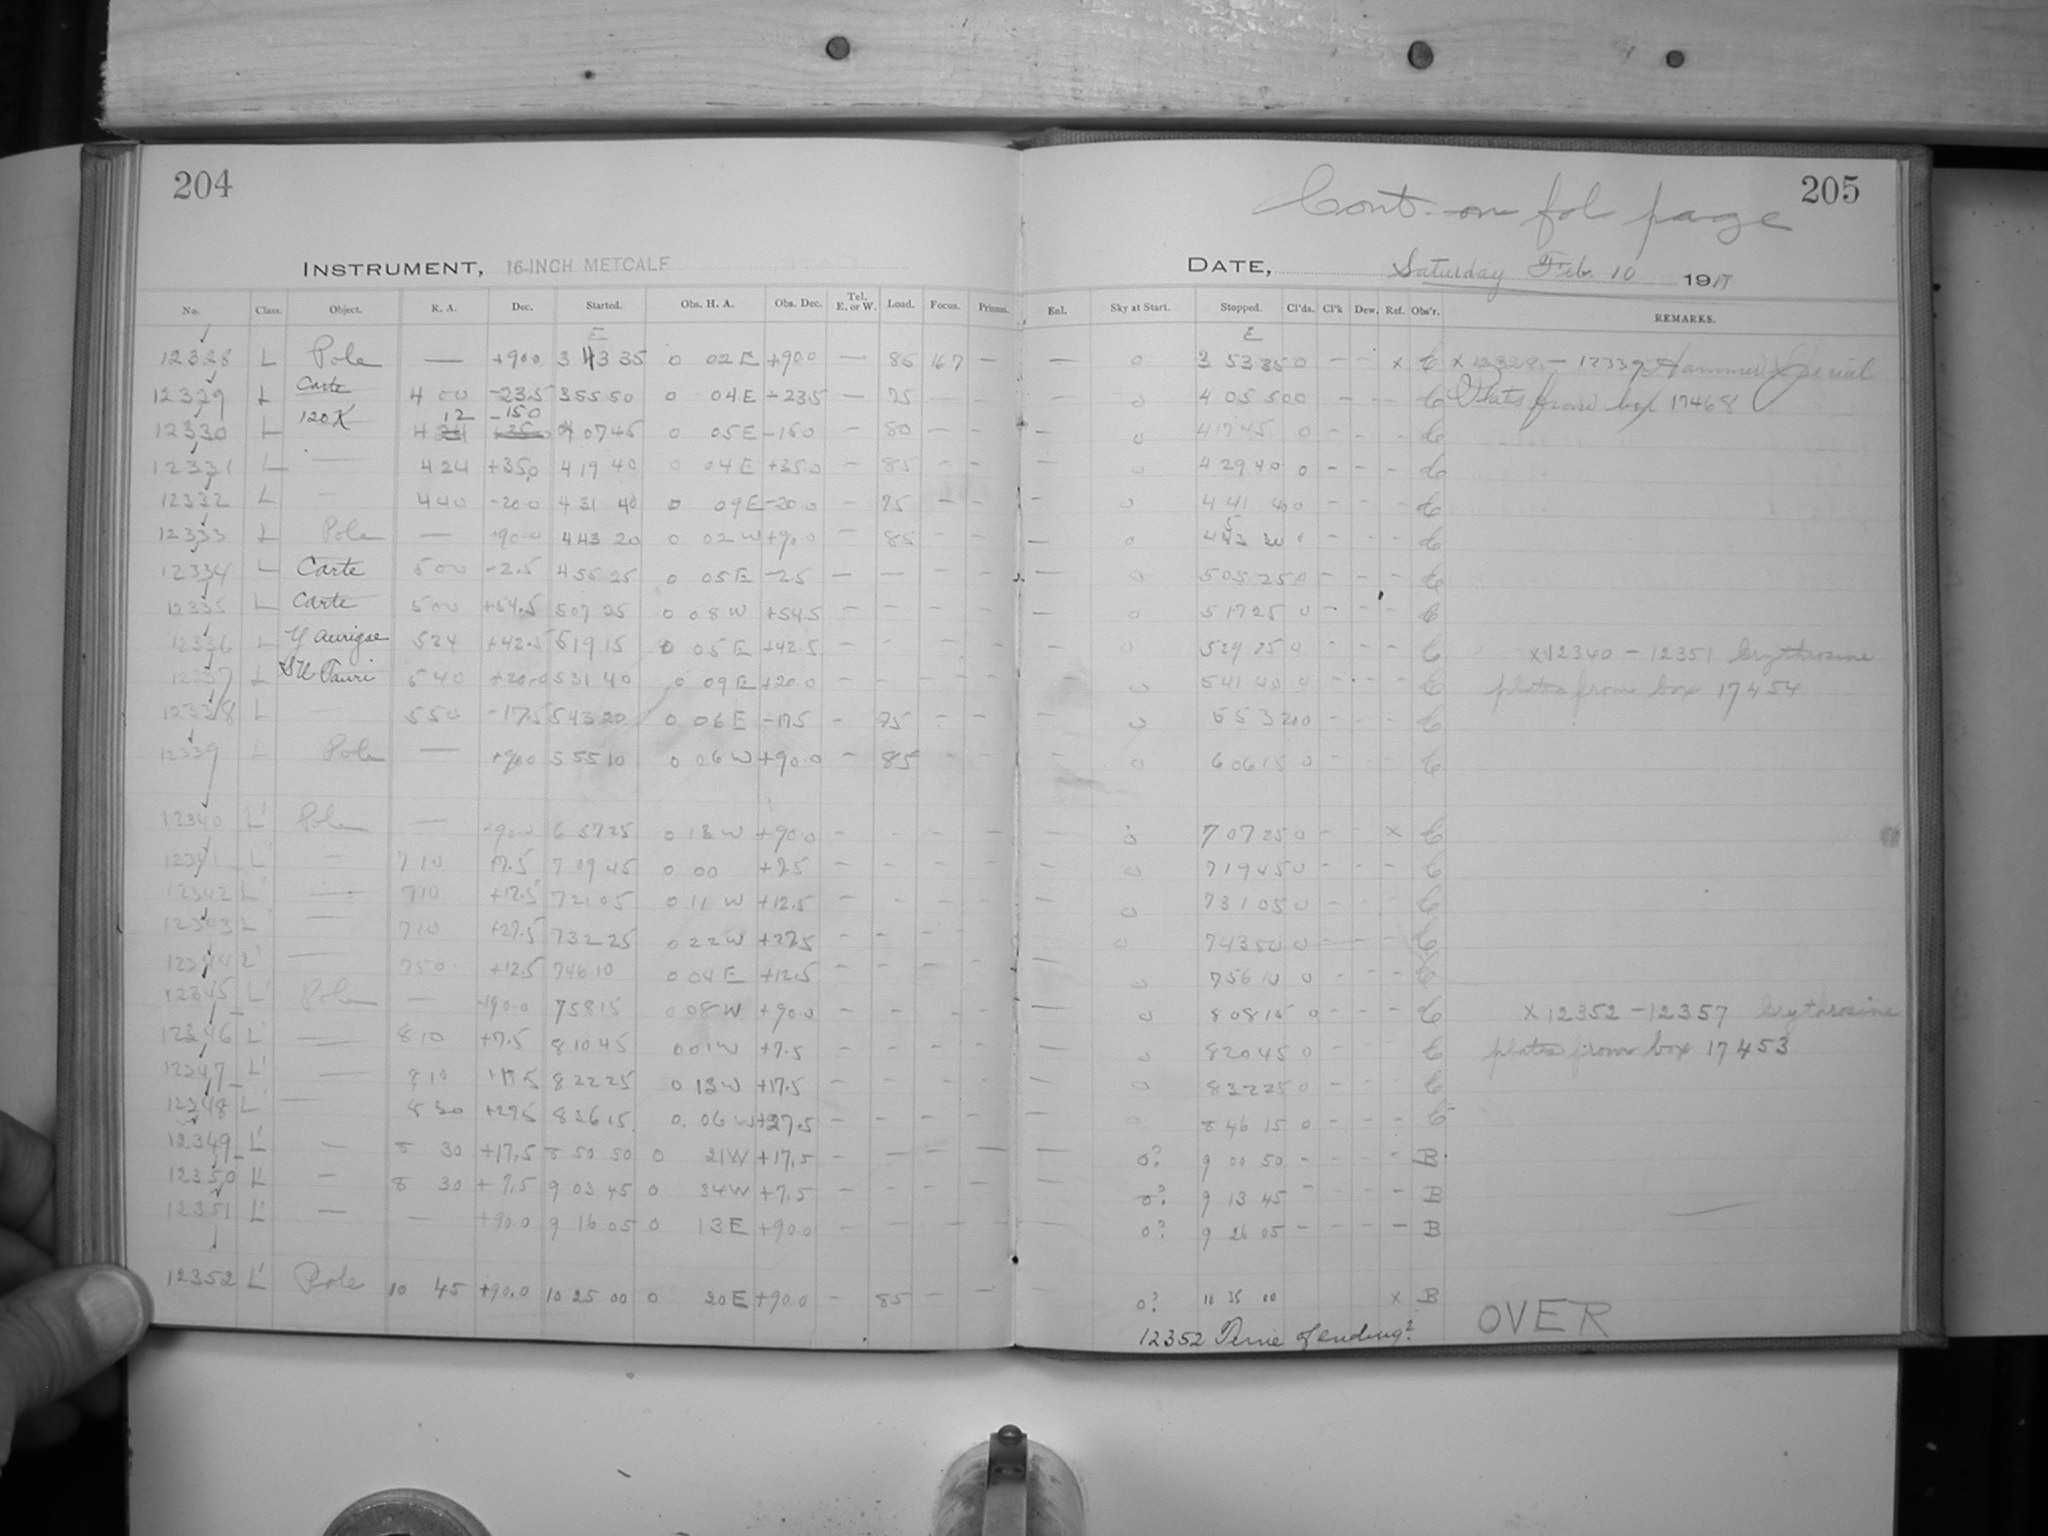 204
INSTRUMENT, 16-INCH METCALF
No. Class. Object. R. A. Dec. Started. Obs. H. A. Obs. Dec. Tel. E. or W. Load. Focus. Prisms.
E
12328 L Pole — +90.0 3 43 35 0 02 E +90.0 — 85 167 —
12329 L Carte 4 00 -23.5 3 55 50 0 04 E -23.5 — 75 — —
12 -150
12330 L 120K 4 07 45 0 05 E -15.0 — 80 — —
12331 L — 4 24 +35.0 4 19 40 0 04 E +35.0 — 85 — —
12332 L — 4 40 -20.0 4 31 40 0 09 E -20.0 — 75 — —
12333 L Pole — +90.0 4 43 20 0 02 W +90.0 — 85 — —
12334 L Carte 5 00 -2.5 4 55 25 0 05 E -2.5 — — — —
12335 L Carte 5 00 +54.5 5 07 25 0 08 W +54.5 — — — —
12336 L Y Aurigae 5 24 +42.5 5 19 15 0 05 E +42.5 — — — —
12337 L SU Tauri 5 40 +20.0 5 31 40 0 09 E +20.0 — — — —
12338 L — 5 50 -17.5 5 43 20 0 06 E -17.5 — 75 — —
12339 L Pole — +90.0 5 55 10 0 06 W +90.0 — 85 — —
12340 L' Pole — +90.0 6 57 25 0 13 W +90.0 — — — —
12341 L' — 7 10 +7.5 7 09 45 0 00 +7.5 — — — —
12342 L' — 7 10 +12.5 7 21 05 0 11 W +12.5 — — — —
12343 L' — 7 10 +27.5 7 32 25 0 22 W +27.5 — — — —
12344 L' — 7 50 +12.5 7 46 10 0 04 E +12.5 — — — —
12345 L' Pole — +90.0 7 58 15 0 08 W +90.0 — — — —
12346 L' — 8 10 +7.5 8 10 45 0 01 W +7.5 — — — —
12347 L' — 8 10 +17.5 8 22 25 0 13 W +17.5 — — — —
12348 L' — 8 30 +27.5 8 36 15 0 06 W +27.5 — — — —
12349 L' — 8 30 +17.5 8 50 50 0 21 W +17.5 — — — —
12350 L' — 8 30 +7.5 9 03 45 0 34 W +7.5 — — — —
12351 L' — — +90.0 9 16 05 0 13 E +90.0 — — — —
12352 L' Pole 10 45 +90.0 10 25 00 0 20 E +90.0 — 85 — —
205
Cont. on fol page
DATE, Saturday Feb. 10 1917
Enl. Sky at Start. Stopped. Cl'ds. Cl'k Dew. Ref. Obs'r. REMARKS.
E
— 0 3 53 35 0 — — x C x 12328 - 12339 Hammer Special
— 0 4 05 50 0 — — — C Plates from box 17468
— 0 4 17 45 0 — — — C
— 0 4 29 40 0 — — — C
— 0 4 41 40 0 — — — C
— 0 4 53 20 0 — — — C
— 0 5 05 25 0 — — — C
— 0 5 17 25 0 — — — C
— 0 5 29 25 0 — — — C x 12340 - 12351 Erythrosine
— 0 5 41 40 0 — — — C plates from box 17454
— 0 5 53 20 0 — — — C
— 0 6 06 15 0 — — — C
— 0 7 07 25 0 — — x C
— 0 7 19 45 0 — — — C
— 0 7 31 05 0 — — — C
— 0 7 43 50 0 — — — C
— 0 7 56 10 0 — — — C
— 0 8 08 15 0 — — — C x 12352 - 12357 Erythrosine
— 0 8 20 45 0 — — — C plates from box 17453
— 0 8 32 25 0 — — — C
— 0 8 46 15 0 — — — C
— 0? 9 00 50 — — — — B
— 0? 9 13 45 — — — — B
— 0? 9 26 05 — — — — B
0? 10 35 00 x B
12352 Time of ending?
OVER